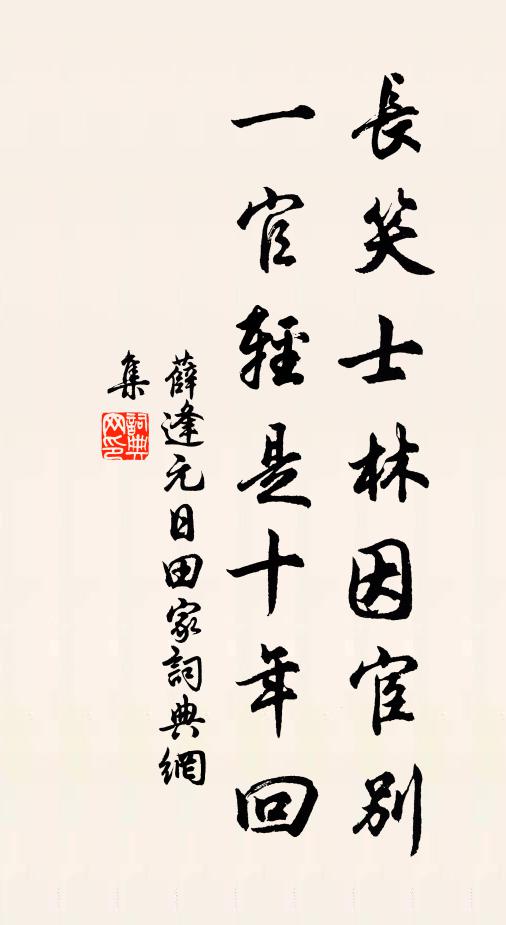 長笑士林因宦別
一官輕是十年回
薛逢元日田家詞典網
集
詞典網印